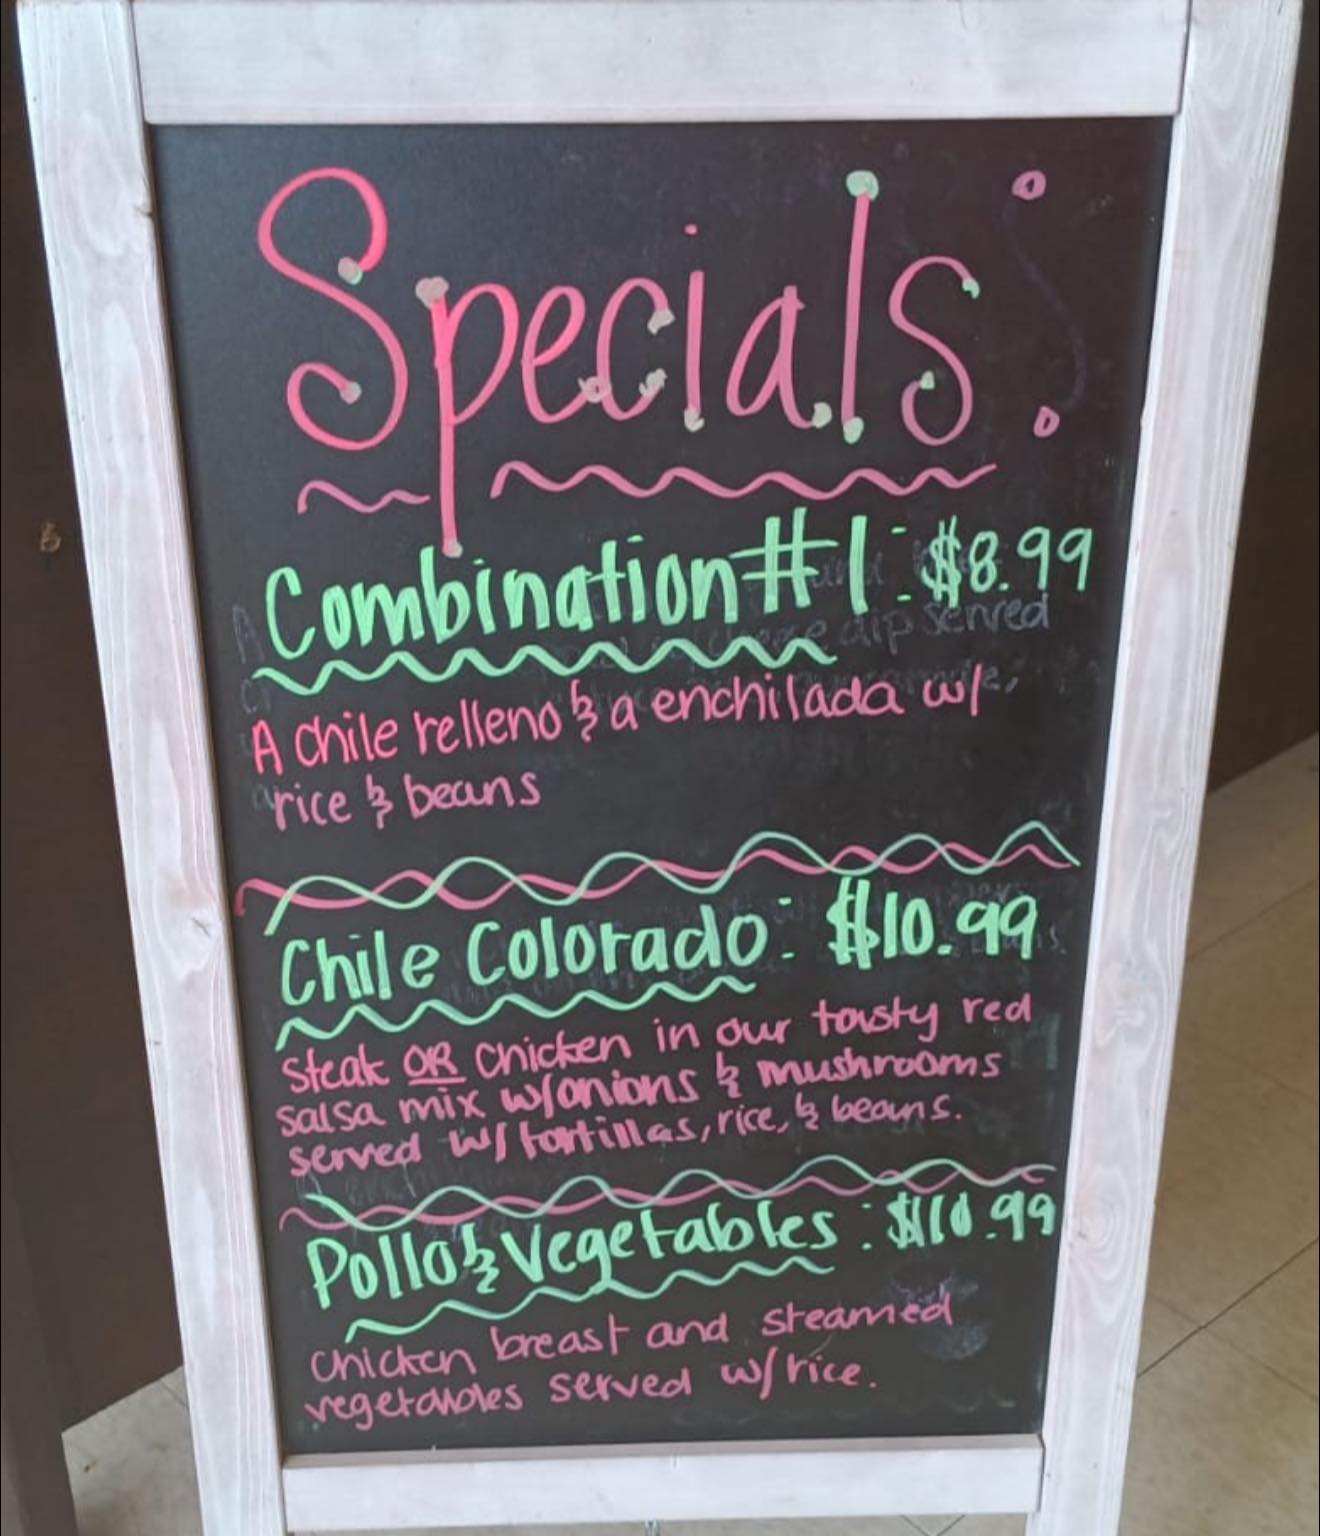 Specials:
Combination #1: $8.99
A chile relleno & a enchilada w/
rice & beans
Chile Colorado: $10.99
Steak OR chicken in our tasty red
salsa mix w/onions & mushrooms
served w/ tortillas, rice, & beans.
Pollo & Vegetables: $10.99
Chicken breast and steamed
vegetables served w/rice.